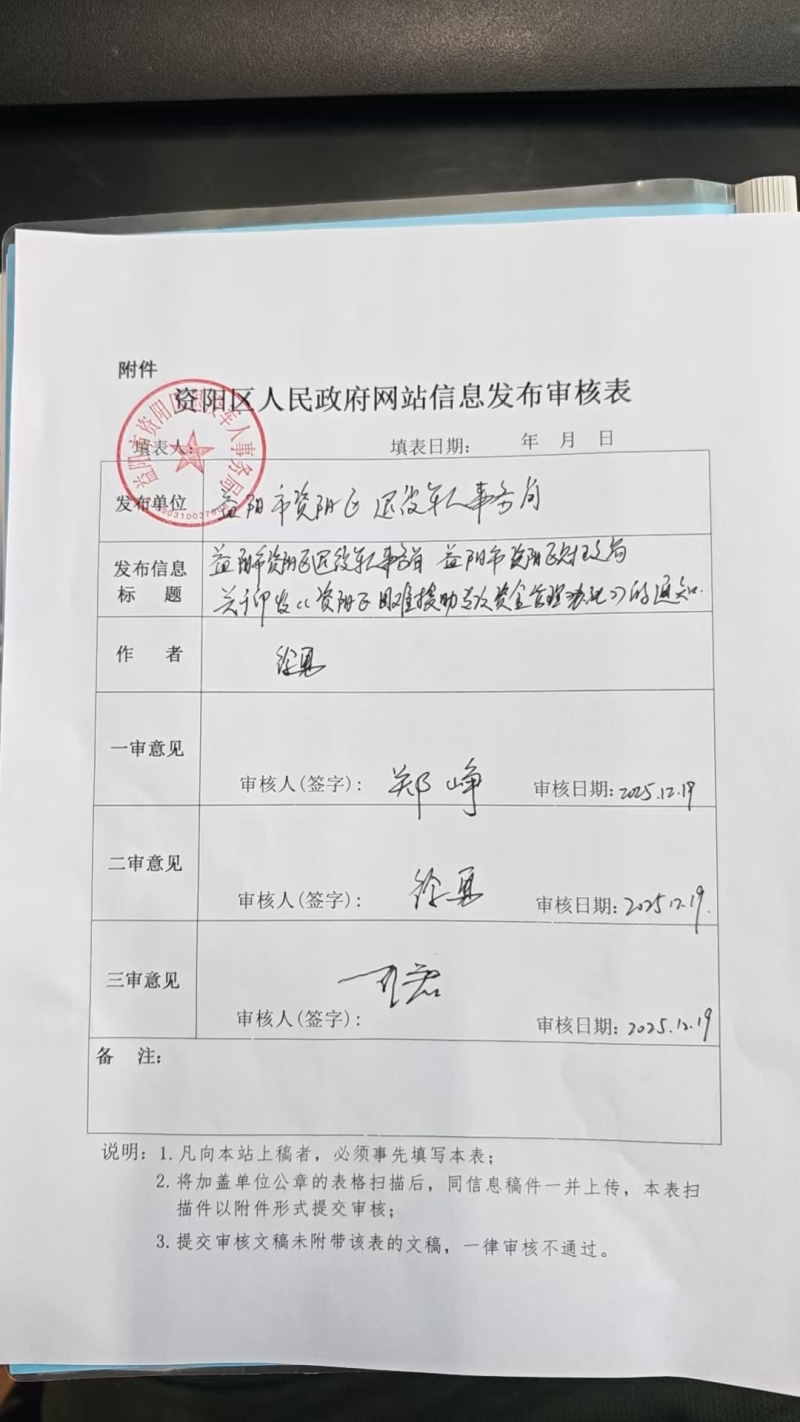 附件
资阳区人民政府网站信息发布审核表
填表人: 填表日期: 年 月 日
发布单位 益阳市资阳区退役军人事务局
发布信息标 题 益阳市资阳区退役军人事务局 益阳市资阳区财政局
关于印发《资阳区困难援助专项资金管理办法》的通知.
作 者 徐夏
一审意见 审核人(签字): 郑峥 审核日期: 2025.12.19
二审意见 审核人(签字): 徐夏 审核日期: 2025.12.19.
三审意见 审核人(签字): 审核日期: 2025.12.19
备 注:
说明: 1. 凡向本站上稿者, 必须事先填写本表;
2. 将加盖单位公章的表格扫描后, 同信息稿件一并上传, 本表扫
描件以附件形式提交审核;
3. 提交审核文稿未附带该表的文稿, 一律审核不通过。